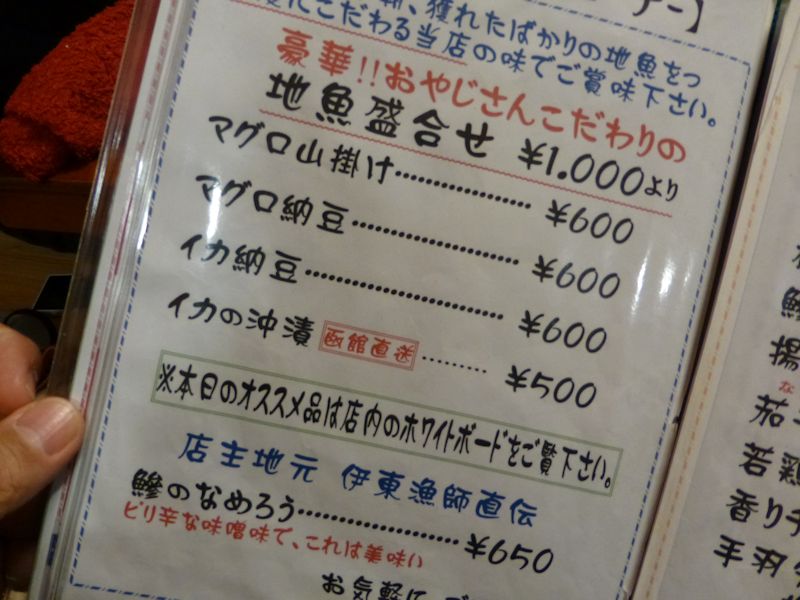 獲れたばかりの地魚をつ
にこだわる当店の味でご賞味下さい。
豪華!!おやじさんこだわりの
地魚盛合せ ¥1.000より
マグロ山掛け……………… ¥600
マグロ納豆……………… ¥600
イカ納豆……………… ¥600
イカの沖漬 函館直送 ……… ¥500
※本日のオススメ品は店内のホワイトボードをご覧下さい。
店主地元 伊東漁師直伝
鰺のなめろう……………… ¥650
ピリ辛な味噌味で、これは美味い
お気軽に
揚
な
茄
若鶏
香り
手羽